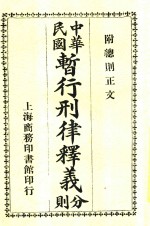 附總則正文
中華民國暫行刑律釋義分則
上海商務印書館印行